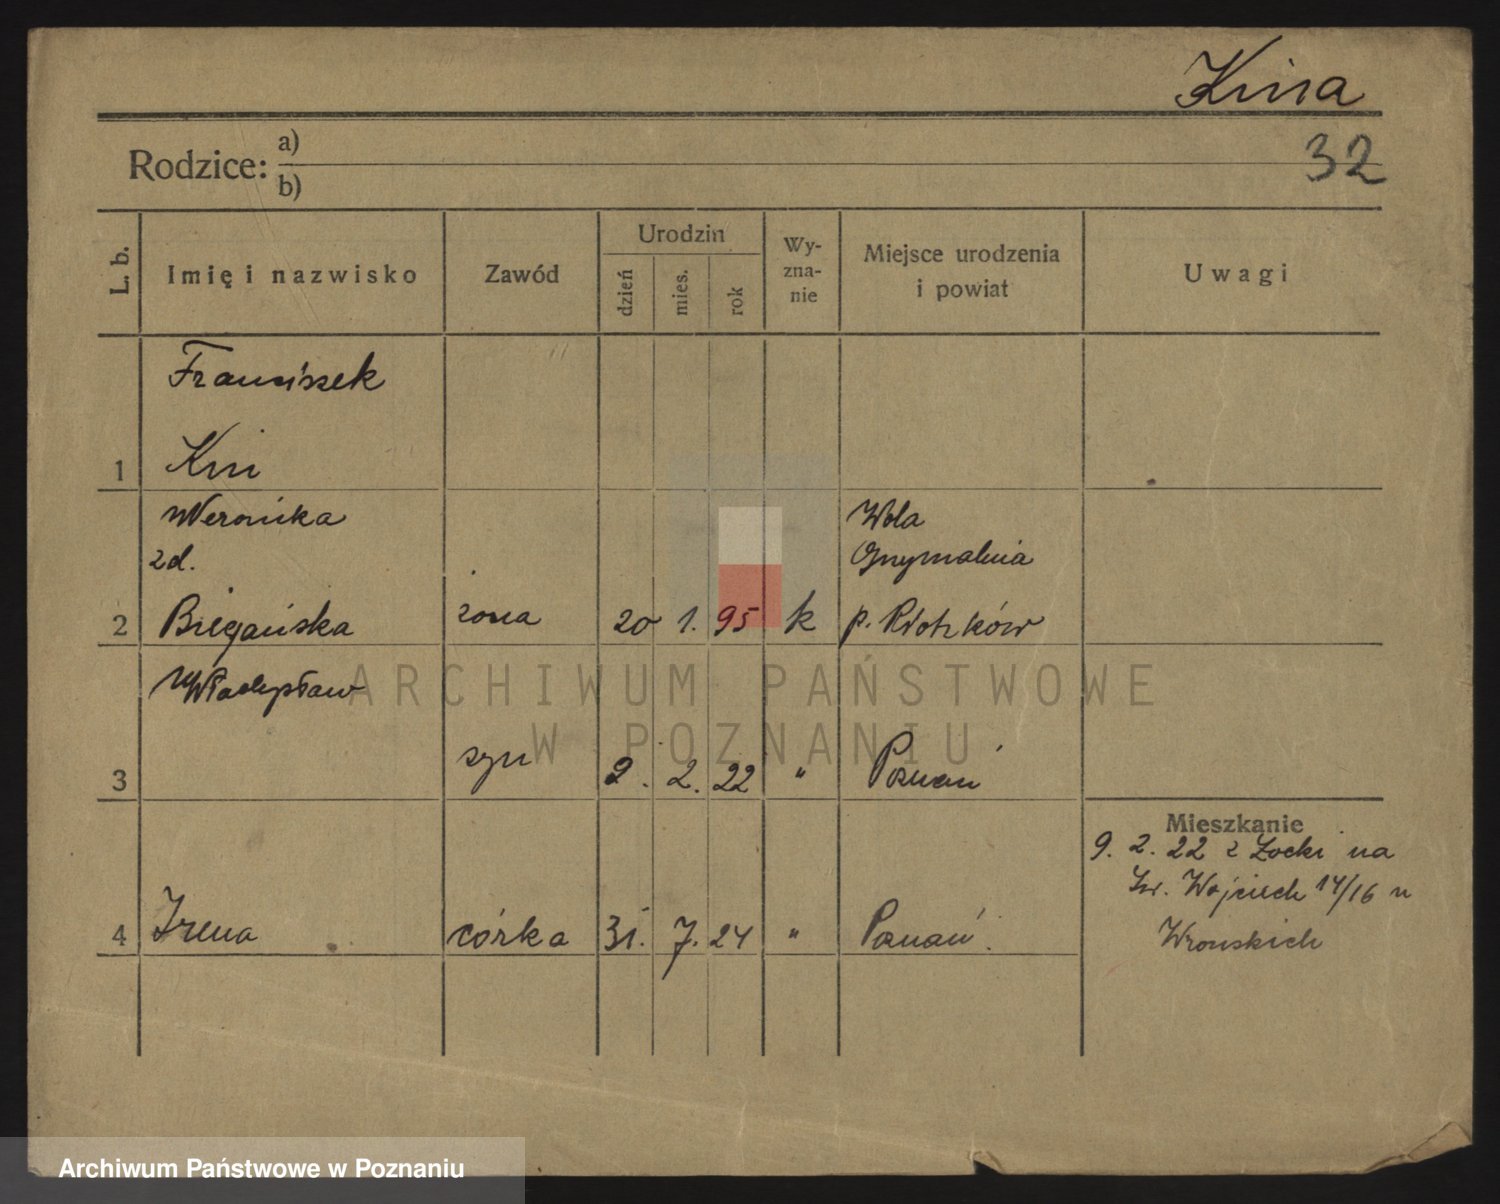 Kina
32
Rodzice: a)
b)
L. b.
Imię i nazwisko
Zawód
Urodzin
dzień
mies.
rok
Wy-
zna-
nie
Miejsce urodzenia
i powiat
Uwagi
Franciszek
1 Kin
Weronika
zd.
2 Biegańska żona 20 1. 95 k
Wola
p. Piotrków
Władysław
3 syn 2. 2. 22 " Poznań
4 Irena córka 31. 7. 24 " Poznań.
Mieszkanie
9. 2. 22 z Łocki na
Św. Wojciech 14/16 u
Wronskich
ARCHIWUM PAŃSTWOWE
W POZNANIU
Archiwum Państwowe w Poznaniu